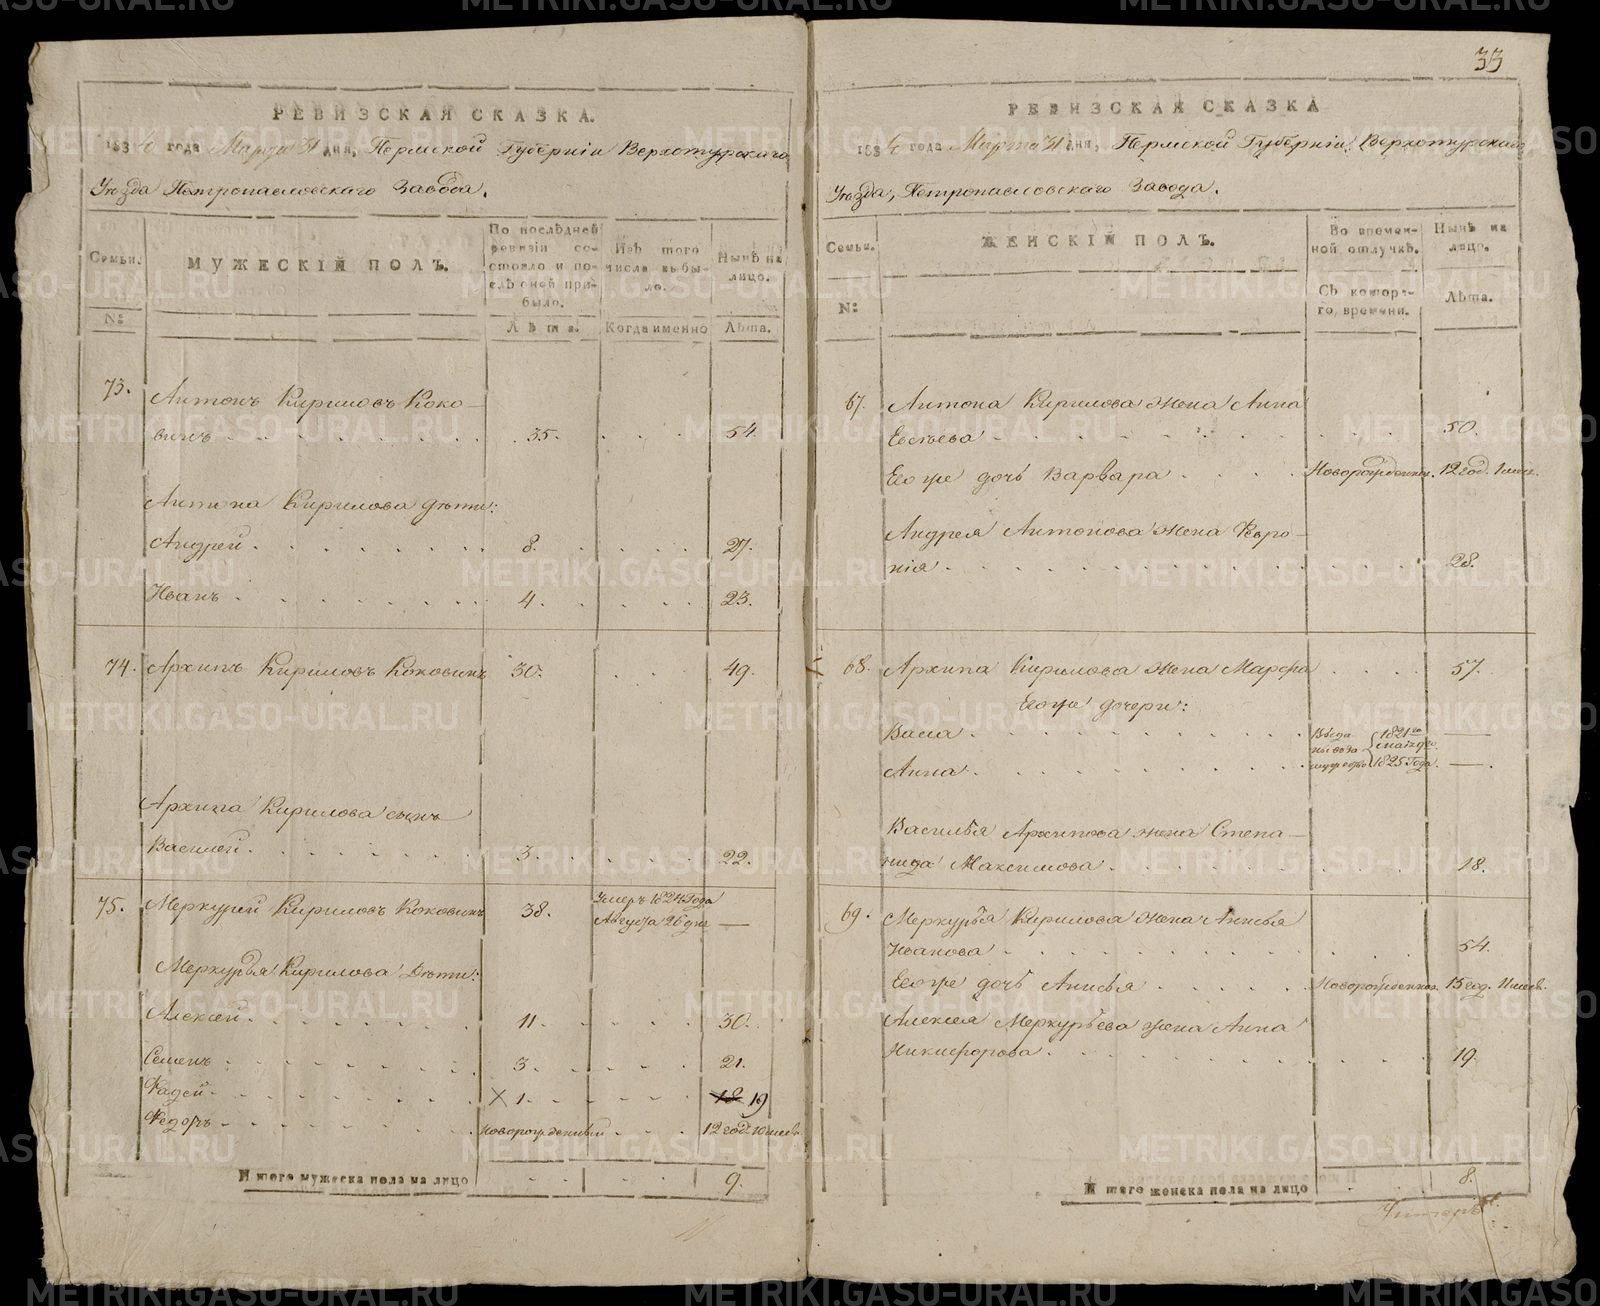 33
РЕВИЗСКАЯ СКАЗКА.
183 года Марта 31 дня, Пермской Губерніи Верхотурскаго
Уѣзда Петропавловскаго Завода.
Семьи.
№:
МУЖЕСКІЙ ПОЛЪ.
По послѣдней ревизіи состояло и послѣ оной прибыло.
Лѣта.
Изъ того числа выбыло.
Когда именно
Нынѣ на лицо.
Лѣта.
73. Антонъ Кириловъ Коко-
винъ 35. 54.
Антона Кирилова дѣти:
Андрей 8. 27.
Иванъ 4. 23.
74. Архипъ Кириловъ Коковинъ 30. 49.
Архипа Кирилова сынъ
Василей 3. 22.
75. Меркурей Кириловъ Коковинъ 38. Умеръ 1824 Года
Августа 26 дня —
Меркурья Кирилова Дѣти:
Алексей 11. 30.
Семенъ 3. 21.
Фадей X 1. 18 19
Федоръ новорожденный 12 год. 10 месев.
И того мужеска пола на лицо 9.
РЕВИЗСКАЯ СКАЗКА
183 года Марта 31 дня, Пермской Губерніи Верхотурскаго
Уѣзда, Петропавловскаго Завода.
Семьи.
№:
ЖЕНСКІЙ ПОЛЪ.
Во временной отлучкѣ.
Съ котораго времени.
Нынѣ на лицо.
Лѣта.
67. Антона Кирилова жена Анна
Евсѣева 50.
Его же дочь Варвара Новорожденная. 12 год. 1 меся.
Андрея Антонова жена Февро-
нія 28.
68. Архипа Кирилова жена Марфа 57.
Его же дочери:
Васса 1821го —
Анна 1825 Года. —
Василья Архипова жена Степа-
нида Максимова 18.
69. Меркурья Кирилова жена Анисья
Иванова 54.
Его же дочь Анисья Новорожденная. 15 год. 11 месев.
Алексея Меркурьева жена Анна
Никифорова 19.
И того женска пола на лицо 8.